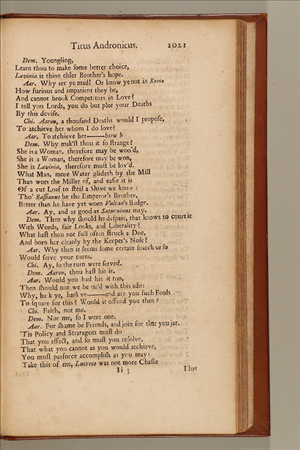 Titus Andronicus. 2021
Dem. Youngling,
Learn thou to make some better choice,
Lavinia is thine elder Brother's hope.
Aar. Why are ye mad! Or know ye not in Rome
How furious and impatient they be,
And cannot brook Competitors in Love?
I tell you Lords, you do but plot your Deaths
By this devise.
Chi. Aaron, a thousand Deaths would I propose,
To atchieve her whom I do love?
Aar. To atchieve her——how?
Dem. Why mak'st thou it so strange?
She is a Woman, therefore may be woo'd,
She is a Woman, therefore may be won,
She is Lavinia, therefore must be lov'd.
What Man, more Water glideth by the Mill
Than wots the Miller of, and easie it is
Of a cut Loaf to steal a Shive we know:
Tho' Bassianus be the Emperor's Brother,
Better than he have yet worn Vulcan's Badge.
Aar. Ay, and as good as Saturninus may.
Dem. Then why should he despair, that knows to court it
With Words, fair Looks, and Liberality?
What hast thou not full often struck a Doe,
And born her cleanly by the Keeper's Nose?
Aar. Why then it seems some certain snatch or so
Would serve your turns.
Chi. Ay, so the turn were served.
Dem. Aaron, thou hast hit it.
Aar. Would you had hit it too,
Then should not we be tir'd with this ado:
Why, hark ye, hark ye——and are you such Fools
To square for this? Would it offend you then?
Chi. Faith, not me.
Dem. Nor me, so I were one.
Aar. For shame be Friends, and join for that you jar.
'Tis Policy and Stratagem must do
That you affect, and so must you resolve,
That what you cannot as you would atchieve,
You must perforce accomplish as you may:
Take this of me, Lucrece was not more Chaste
Ii 3 Than